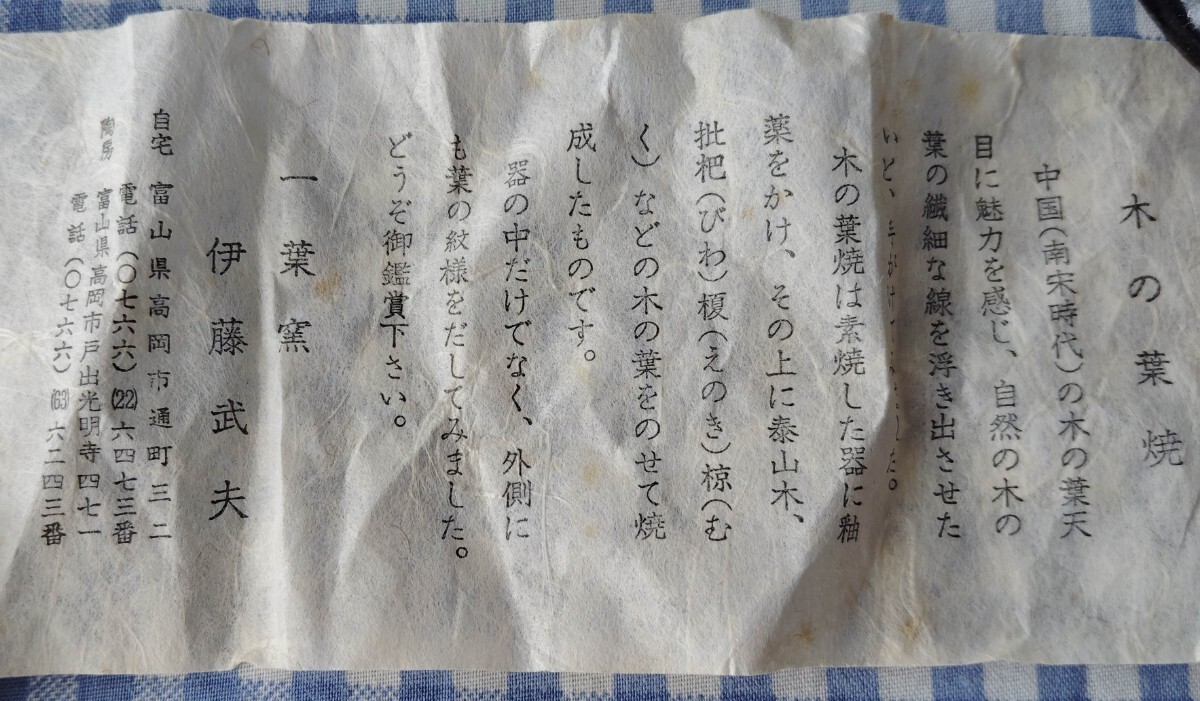 木の葉焼
中国（南宋時代）の木の葉天
目に魅力を感じ、自然の木の
葉の繊細な線を浮き出させた
いと、手がけてみました。
木の葉焼は素焼した器に釉
薬をかけ、その上に泰山木、
批杷（びわ）榎（えのき）椋（む
く）などの木の葉をのせて焼
成したものです。
器の中だけでなく、外側に
も葉の紋様をだしてみました。
どうぞ御鑑賞下さい。
一葉窯
伊藤武夫
自宅 富山県高岡市通町三二
電話（〇七六六）(22)六四七三番
陶房 富山県高岡市戸出光明寺四七一
電話（〇七六六）(63)六二四三番